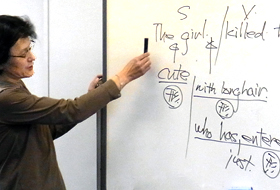 S V
The girl / killed t
cute with long hair.
形 形
who has entere
just. 形